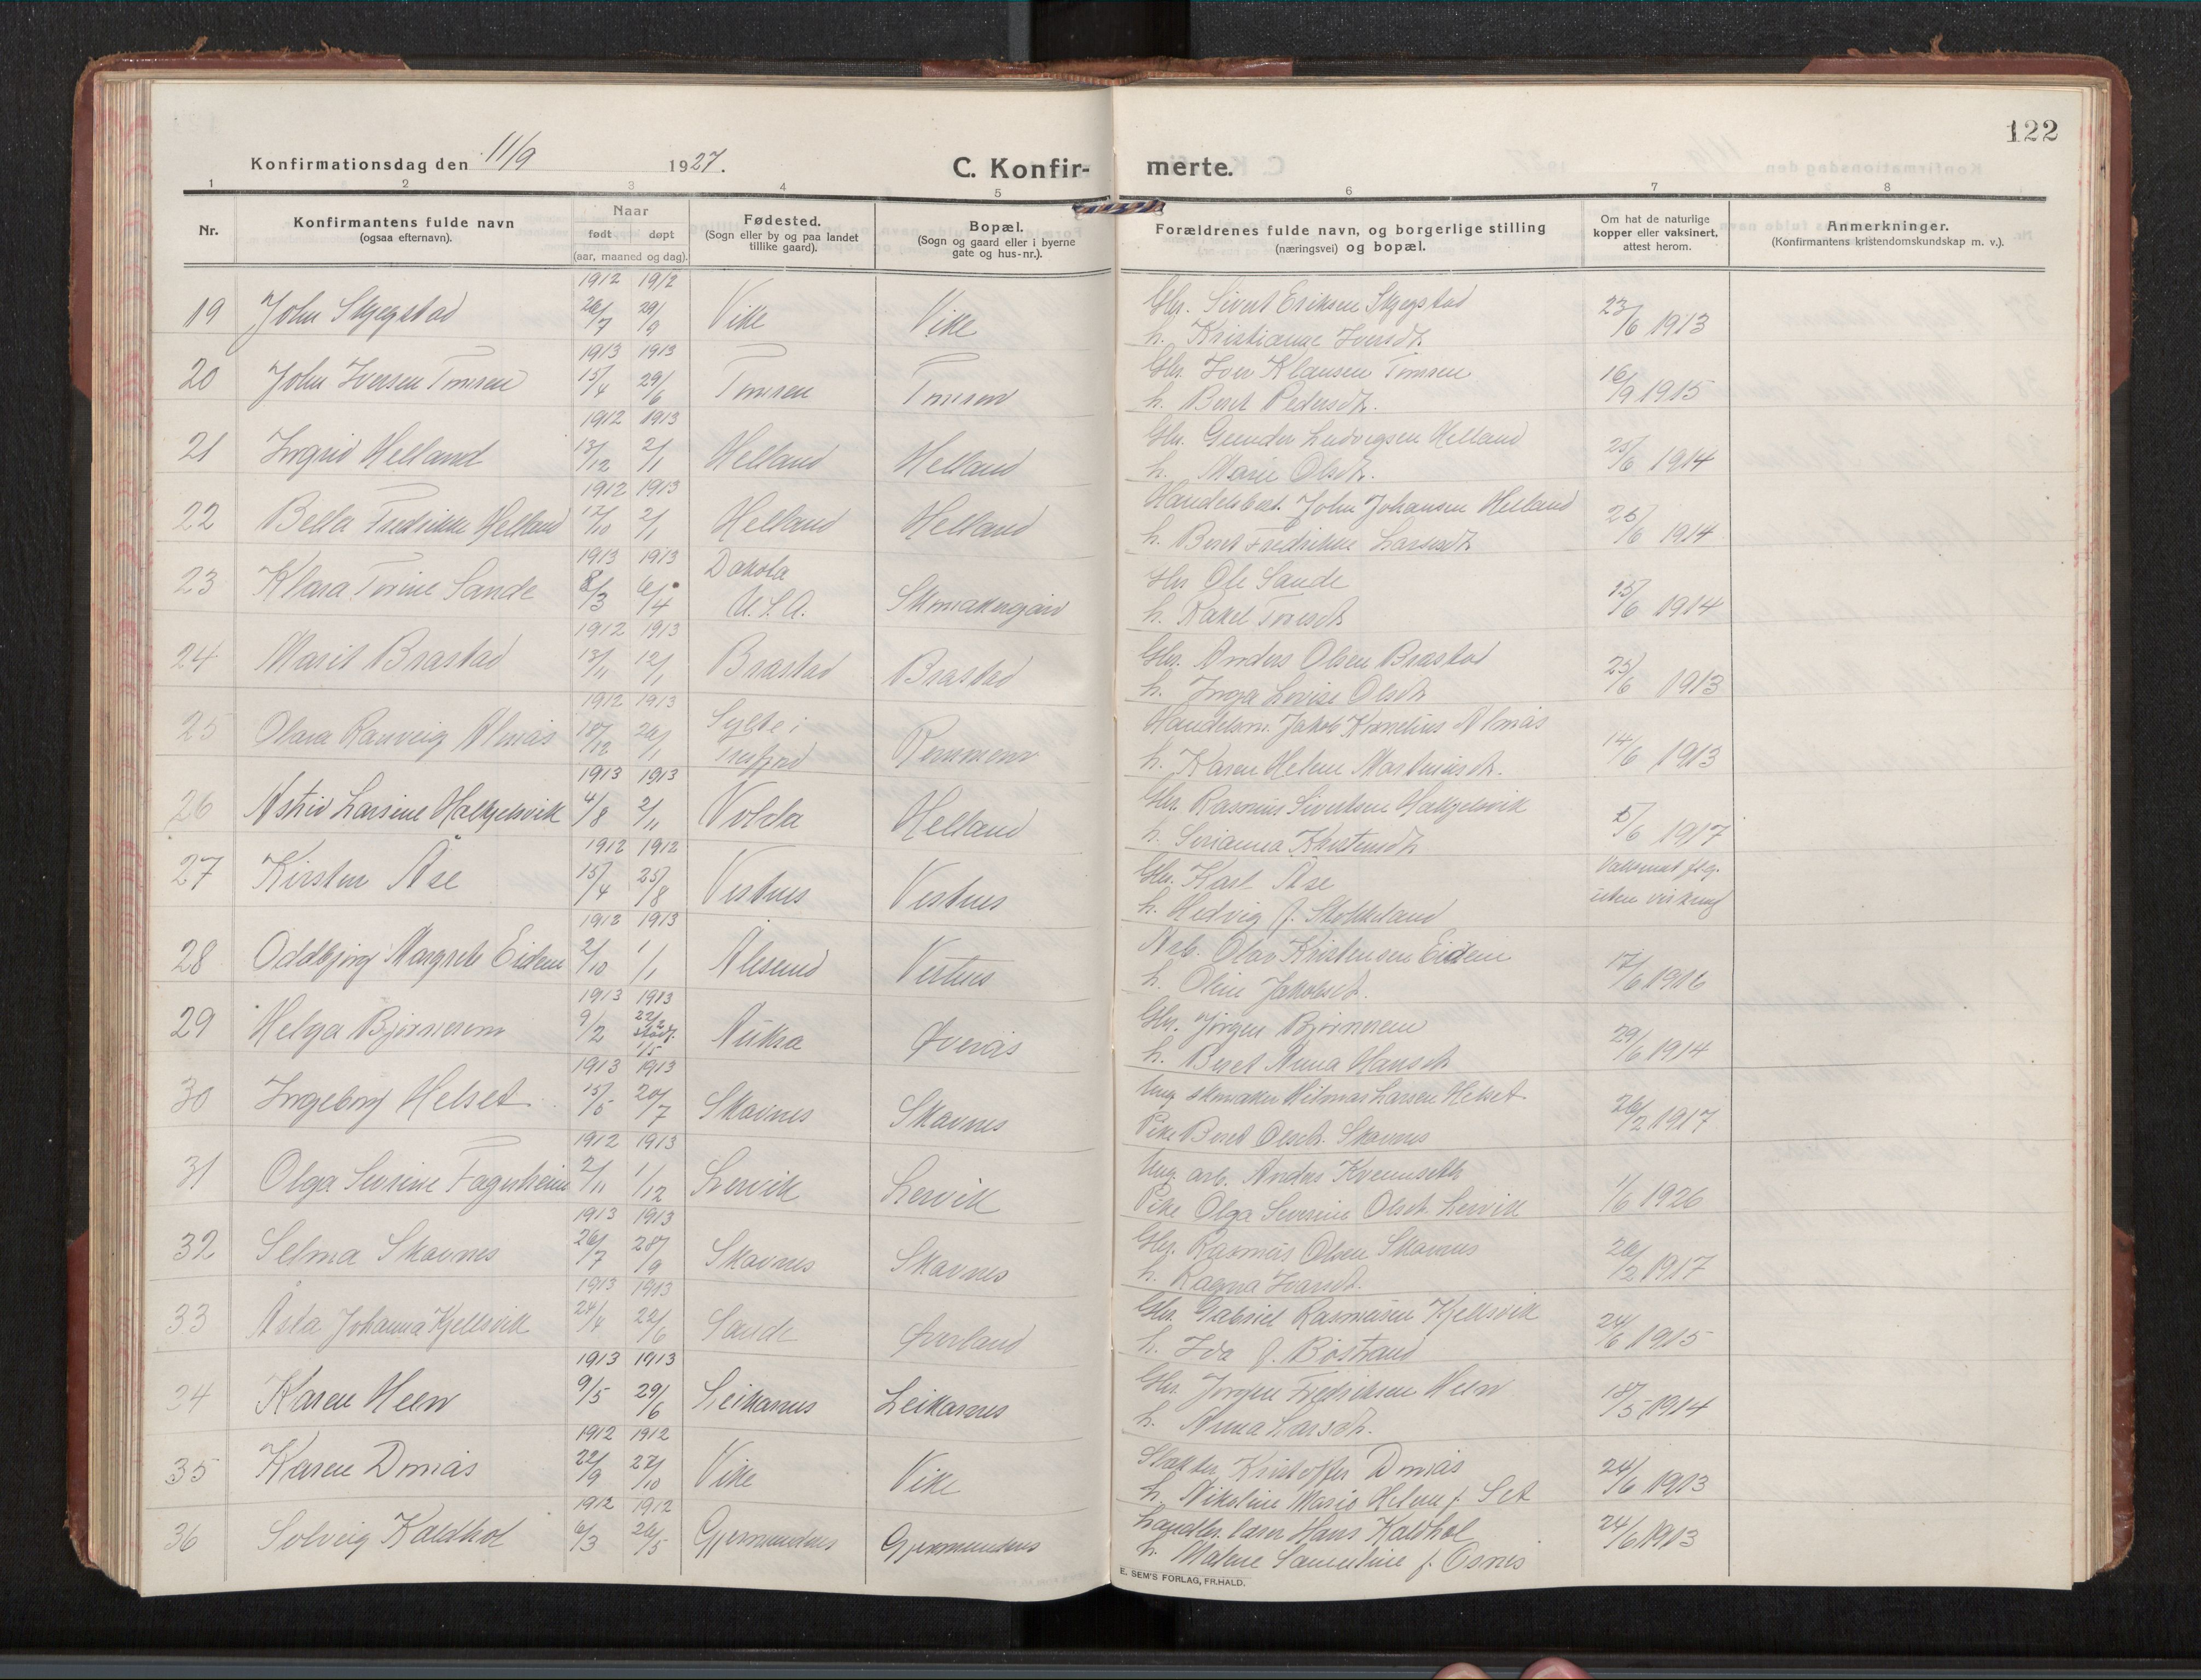 122
Konfirmationsdag den 11/9 1927.
C. Konfir- merte.
1 2 3 4 5 6 7 8
Nr.
Konfirmantens fulde navn
(ogsaa efternavn).
Naar
født døpt
(aar, maaned og dag).
Fødested.
(Sogn eller by og paa landet
tillike gaard).
Bopæl.
(Sogn og gaard eller i byerne
gate og hus-nr.).
Forældrenes fulde navn, og borgerlige stilling
(næringsvei) og bopæl.
Om hat de naturlige
kopper eller vaksinert,
attest herom.
Anmerkninger.
(Konfirmantens kristendomskundskap m. v.).
1912 1912
19 John Skjegstad 26/7 29/9 Vike Vike Gbr. Sivert Eriksen Skjegstad 23/6 1913
h. Kristianne Iversdt.
1913 1913
20 John Iversen Tomren 15/4 29/6 Tomren Tomren Gbr. Iver Klausen Tomren 16/9 1915
h. Beret Pedersdt.
1912 1913
21 Ingrid Helland 13/12 2/1 Helland Helland Gbr. Gunder Ludvigsen Helland 25/6 1914
h. Marie Olsdt.
1912 1913
22 Bella Fredrikke Helland 17/10 2/1 Helland Helland Handelsbest. John Johansen Helland 25/6 1914
h. Beret Fredrikke Larsesdt.
1913 1913
23 Klara Torine Sande 8/3 6/4 Dakota
U.S.A. Skomakergård Gbr. Ole Sande 25/6 1914
h. Rakel Toresdt.
1912 1913
24 Marit Brastad 13/11 12/1 Brastad Brastad Gbr. Anders Olsen Brastad 25/6 1913
h. Inga Lovise Olsdt.
1912 1913
25 Olava Ranveig Almås 18/12 26/1 Sylte i
Tresfjord Remmem Handelsm. Jakob Kornelius Almås 14/6 1913
h. Karen Helene Martinusdt.
1913 1913
26 Astrid Larsine Halkjelsvik 4/8 2/11 Volda Helland Gbr. Rasmus Sivertsen Halkjelsvik 5/6 1917
h. Serianna Karstensdt.
1912 1912
27 Kirsten Åse 15/4 25/8 Vestnes Vestnes Gbr. Karl Åse
h. Hedvig f. Stokkeland
uten virkning
1912 1913
28 Oddbjørg Margrete Eidem 2/10 1/1 Ålesund Vestnes Arb. Olav Kristensen Eidem 17/6 1916
h. Oline Jakobsdt.
1913 1913
29 Helga Bjørnerem 9/2 22/2
1/5 Aukra Øverås Gbr. Jørgen Bjørnerem 29/6 1914
h. Beret Anna Hansdt.
1913 1913
30 Ingeborg Helset 15/5 20/7 Skavnes Skavnes Ung. skomaker Hilmar Larsen Helset 26/2 1917
Pike Beret Olsdt. Skavnes
1912 1913
31 Olga Severine Fagerheim 2/11 1/12 Lervik Lervik Ung. arb. Anders Kvernseth 1/6 1926
Pike Olga Severine Olsdt. Lervik
1913 1913
32 Selma Skavnes 26/7 28/9 Skavnes Skavnes Gbr. Rasmus Olsen Skavnes 26/2 1917
h. Ragna Ivarsdt.
1913 1913
33 Åsta Johanna Kjellsvik 24/4 22/6 Sande Øverland Gbr. Gabriel Rasmusen Kjellsvik 24/6 1915
h. Ida f. Bøstrand
1913 1913
24 Karen Heen 9/5 29/6 Leikanes Leikarnes Gbr. Jørgen Fredriksen Heen 18/5 1914
h. Anna Larsdt.
1912 1912
35 Karen Domås 22/9 27/10 Vike Vike Slakter Kristoffer Domås 24/6 1913
h. Nikoline Marie Helene f. Set
1912 1912
36 Solveig Kaldhol 6/3 26/5 Gjermundnes Gjermundnes Landbr. lærer Hans Kaldhol 24/6 1913
h. Malene Samueline f. Osnes
E. SEM'S FORLAG, FR.HALD.